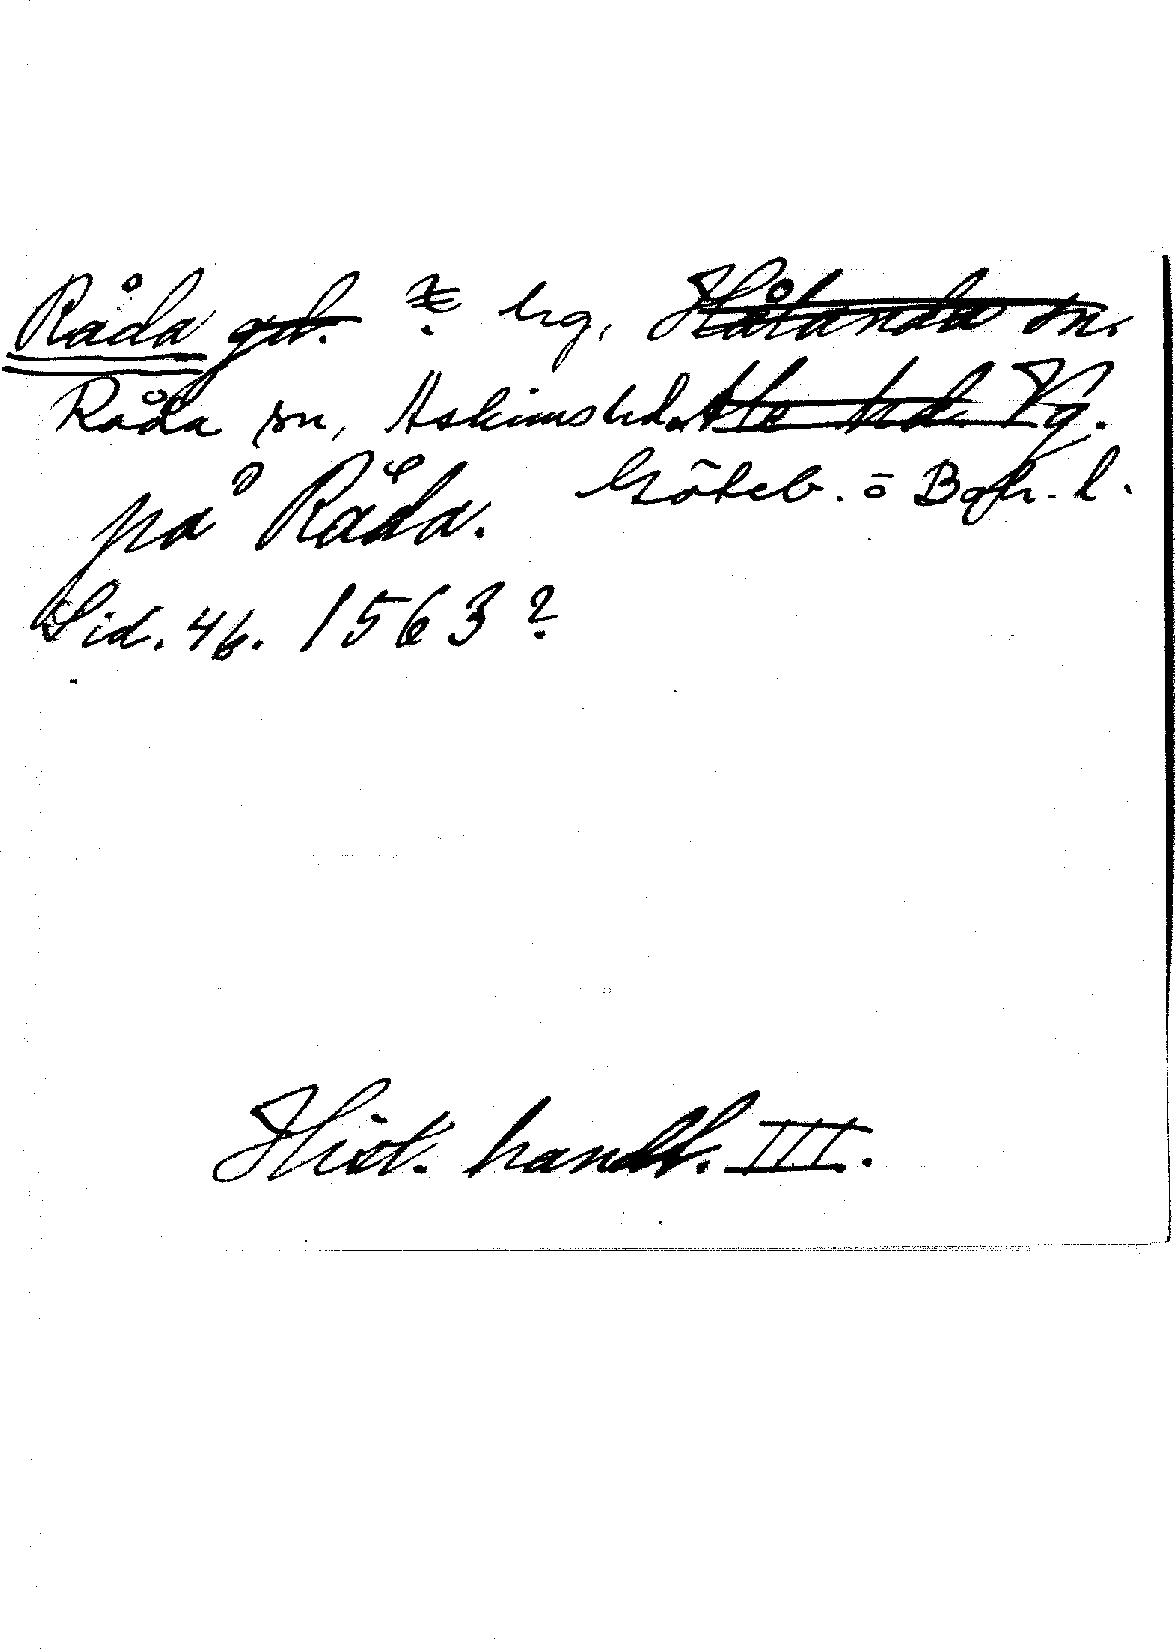 Råda gd. ? hg. Hålanda sn.
Råda sn, Askims hd. Ale hd. Vg.
Göteb. o Boh. l.
på Råda.
Sid. 46. 1563?
Hist. handl. III.